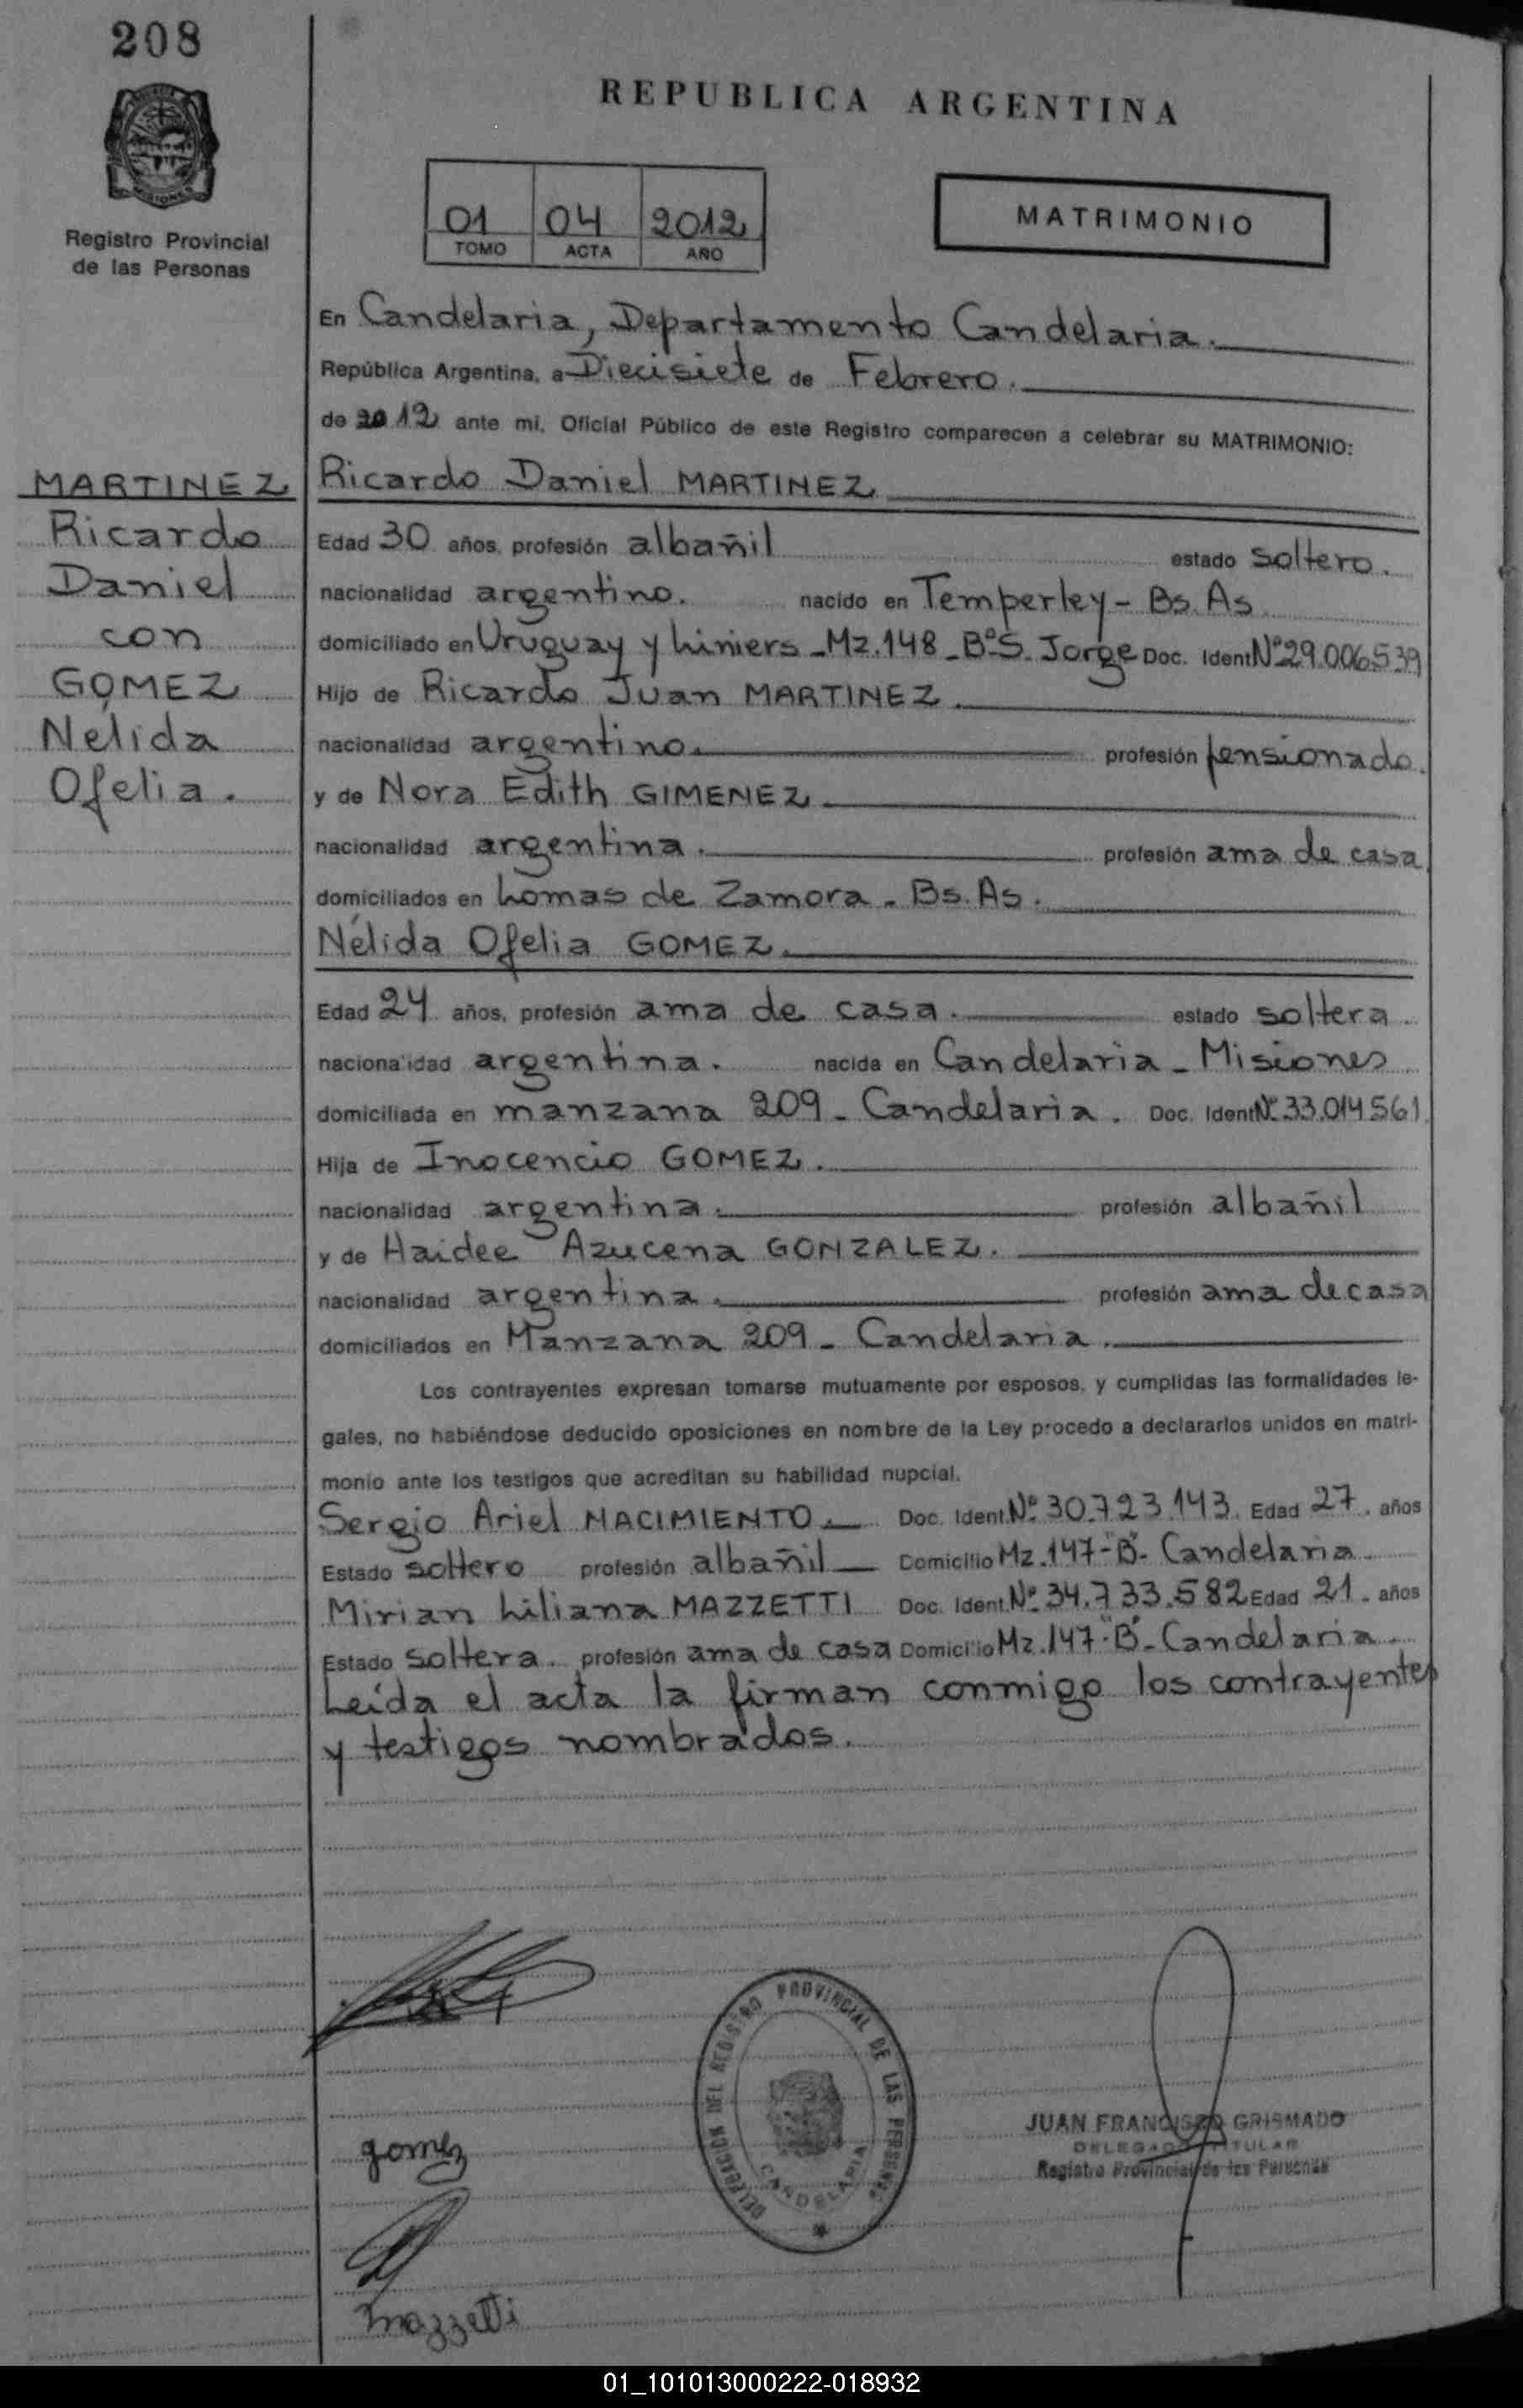 208
REPUBLICA ARGENTINA
Registro Provincial
de las Personas
01 04 2012
TOMO ACTA AÑO
MATRIMONIO
En Candelaria, Departamento Candelaria.
República Argentina, a Diecisiete de Febrero.
de 2012 ante mí, Oficial Público de este Registro comparecen a celebrar su MATRIMONIO:
MARTINEZ
Ricardo
Daniel
con
GOMEZ
Nelida
Ofelia.
Ricardo Daniel MARTINEZ
Edad 30 años, profesión albañil estado soltero.
nacionalidad argentino. nacido en Temperley - Bs. As.
domiciliado en Uruguay y Liniers - Mz. 148 - B° S. Jorge Doc. Ident N° 29.006.539
Hijo de Ricardo Juan MARTINEZ.
nacionalidad argentino. profesión pensionado.
y de Nora Edith GIMENEZ.
nacionalidad argentina. profesión ama de casa
domiciliados en Lomas de Zamora - Bs. As.
Nélida Ofelia GOMEZ.
Edad 24 años, profesión ama de casa. estado soltera.
nacionalidad argentina. nacida en Candelaria - Misiones
domiciliada en manzana 209 - Candelaria. Doc. Ident N° 33.014.561
Hija de Inocencio GOMEZ.
nacionalidad argentina. profesión albañil
y de Haidee Azucena GONZALEZ.
nacionalidad argentina. profesión ama de casa
domiciliados en Manzana 209 - Candelaria.
Los contrayentes expresan tomarse mutuamente por esposos, y cumplidas las formalidades le-
gales, no habiéndose deducido oposiciones en nombre de la Ley procedo a declararlos unidos en matri-
monio ante los testigos que acreditan su habilidad nupcial.
Sergio Ariel NACIMIENTO. Doc. Ident. N° 30.723.143. Edad 27. años
Estado soltero profesión albañil Domicilio Mz. 147-"B"- Candelaria.
Mirian Liliana MAZZETTI Doc. Ident. N° 34.733.582 Edad 21. años
Estado soltera. profesión ama de casa Domicilio Mz. 147-"B"- Candelaria.
Leída el acta la firman conmigo los contrayentes
y testigos nombrados.
DELEGACION DEL REGISTRO PROVINCIAL DE LAS PERSONAS
CANDELARIA
JUAN FRANCISCO GRISMADO
DELEGADO TITULAR
Registro Provincial de las Personas
gomez
mazzetti
01_101013000222-018932